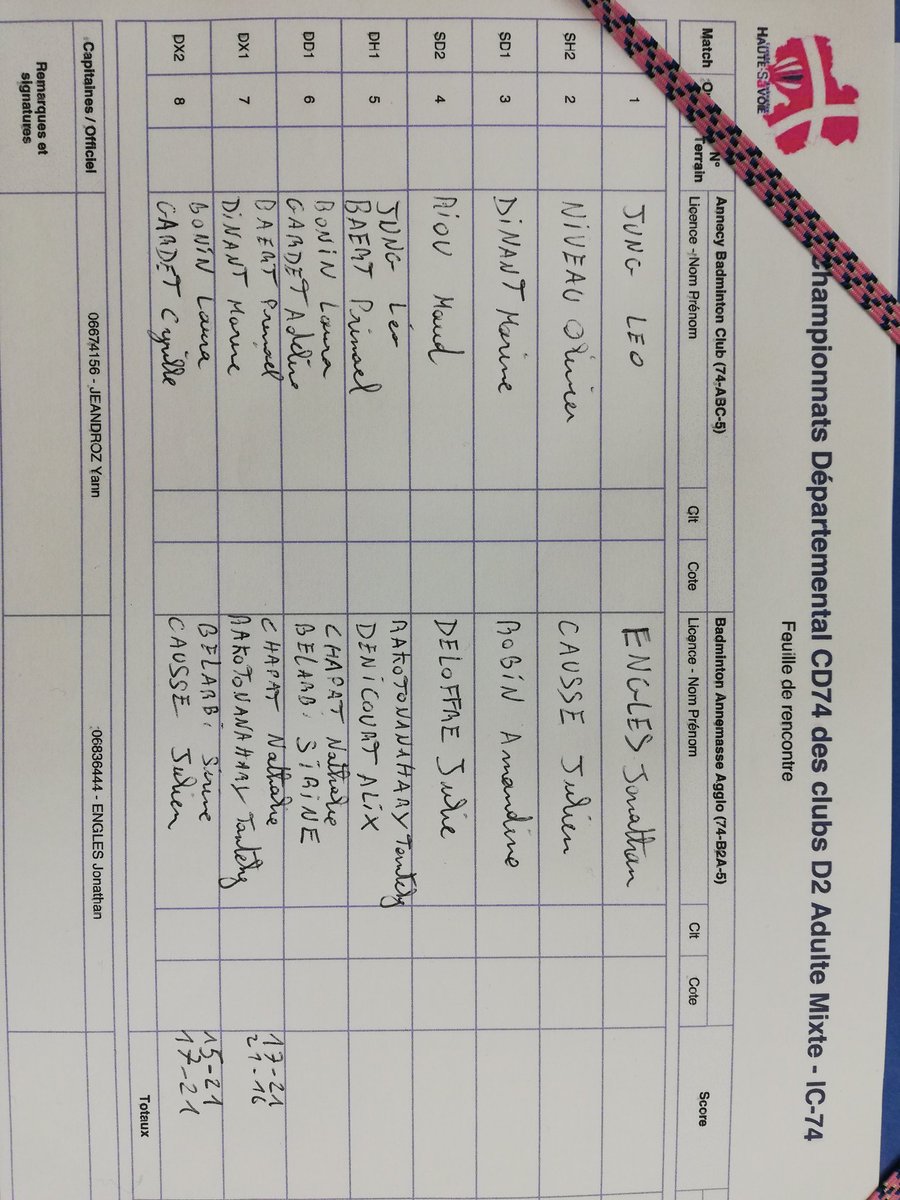 HAUTE SAVOIE
Championnats Départemental CD74 des clubs D2 Adulte Mixte - IC-74
Feuille de rencontre
Match N° Terrain Annecy Badminton Club (74-ABC-5) Licence - Nom Prénom Clt Cote Badminton Annemasse Agglo (74-B2A-5) Licence - Nom Prénom Clt Cote Score
1 JUNG LEO ENGLES Jonathan
SH2 2 NIVEAU Olivier CAUSSE Julien
SD1 3 DiNANT Marine ROBiN Amandine
SD2 4 RiOU Maud DELOFFRE Julie
DH1 5 JUNG Léo RAKOTONANAHARY Tantely
BAERT Primael DENICOURT ALIX
DD1 6 BONiN Laura CHAPAT Nathalie
GARDET Adeline BELARBi SiRiNE
DX1 7 BAERT Primael CHAPAT Nathalie 17-21
DiNANT Marine RAKOTONANAHARY Tantely 21-16
DX2 8 BONiN Laura BELARBi Sirine 15-21
GARDET Cyrille CAUSSE Julien 17-21
Totaux
Capitaines / Officiel 06674156 - JEANDROZ Yann 06836444 - ENGLES Jonathan
Remarques et
signatures